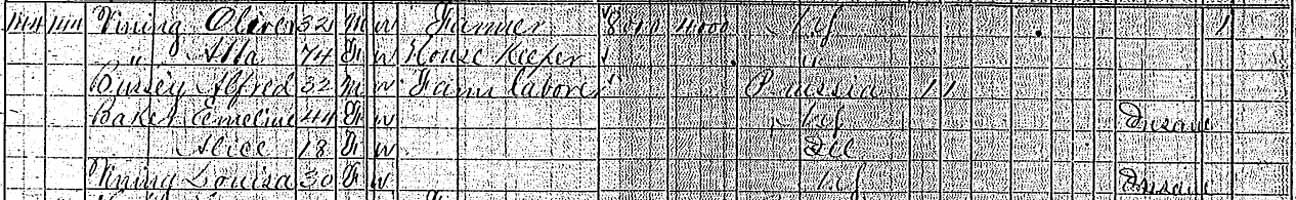 Vining Oliver 32 M W Farmer 8000 4000 "
" Alla 74 F W House Keeper "
Bussey Alfred 32 M W Farm laborer Prussia 1 1
Baker Emeline 44 F W Insane
Alice 18 F W Ill
Vining Louisa 30 F W Insane